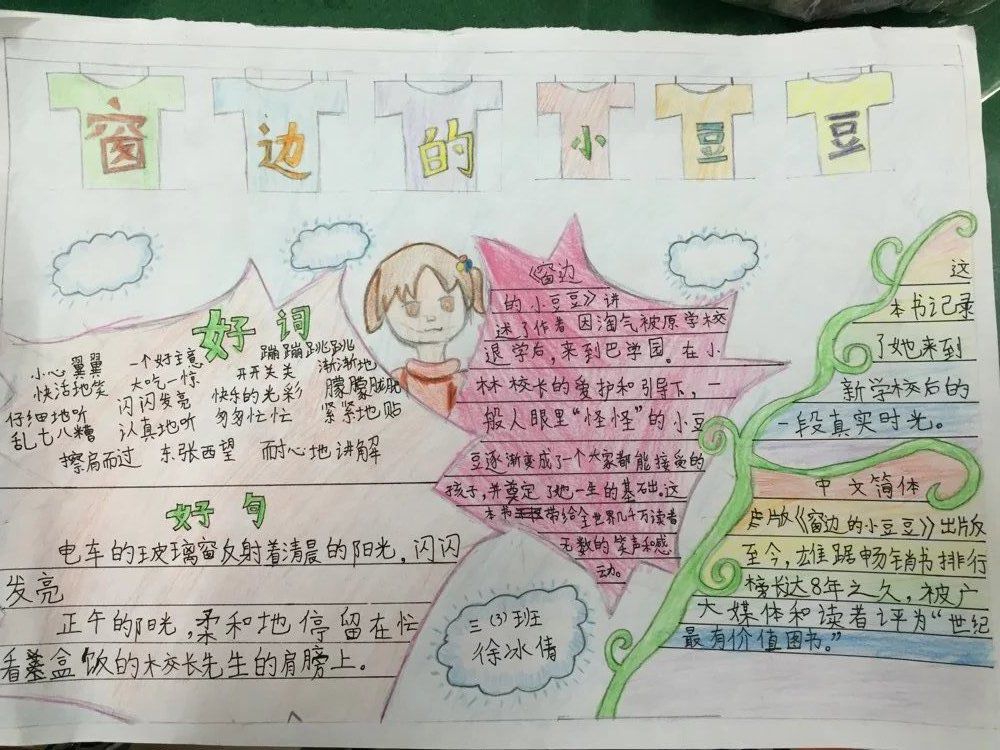 窗边的小豆豆
好词
小心翼翼 一个好主意 蹦蹦蹦跳跳跳
快活地笑 大吃一惊 开开关关 渐渐地
仔细地听 闪闪发亮 快乐的光彩 朦朦胧胧
乱七八糟 认真地听 匆匆忙忙 紧紧地贴
擦肩而过 东张西望 耐心地讲解
好句
电车的玻璃窗反射着清晨的阳光,闪闪
发亮
正午的阳光,柔和地停留在忙
着盖盒饭的木校长先生的肩膀上。
《窗边
的小豆豆》讲
述了作者因淘气被原学校
退学后,来到巴学园。在小
林校长的爱护和引导下,一
般人眼里“怪怪”的小豆
豆逐渐变成了一个大家都能接受的
孩子,并奠定了她一生的基础。这
本书带给全世界几千万读者
无数的笑声和感
动。
三(3)班
徐冰倩
这
本书记录
了她来到
新学校后的
一段真实时光。
中文简体
版《窗边的小豆豆》出版
至今,雄踞畅销书排行
榜长达8年之久,被广
大媒体和读者评为“世纪
最有价值图书。”